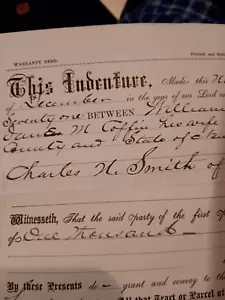 WARRANTY DEED.
This Indenture, Made this
of December in the year of our Lord
Seventy one BETWEEN William
M Coffin his wife
County and State of
Charles H. Smith of
Witnesseth, That the said party of the first
of One Thousand
By these Presents do grant and convey to the
all that Tract or Parcel of